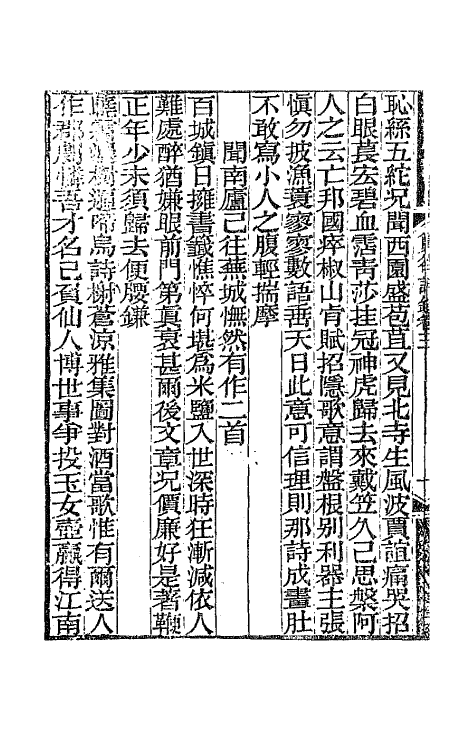 恥絲五紽况聞西園盛苞苴又見北寺生風波賈誼痛哭招
白眼萇宏碧血霑靑莎挂冠神虎歸去來戴笠久已思槃阿
人之云亡邦國瘁椒山肯賦招隱歌意謂盤根别利器主張
愼勿披漁蓑寥寥數語垂天日此意可信理則那詩成畫肚
不敢寫小人之腹輕揣摩
聞南廬已往蕪城憮然有作二首
百城鎭日擁書籤憔悴何堪爲米鹽入世深時狂漸減依人
難處醉猶嫌眼前門第眞衰甚爾後文章况價廉好是著鞭
正年少未須歸去便腰鎌
啼烏詩榭蒼涼雅集圖對酒當歌惟有爾送人
作郡 吾才名已負仙人博世事爭投玉女壺贏得江南